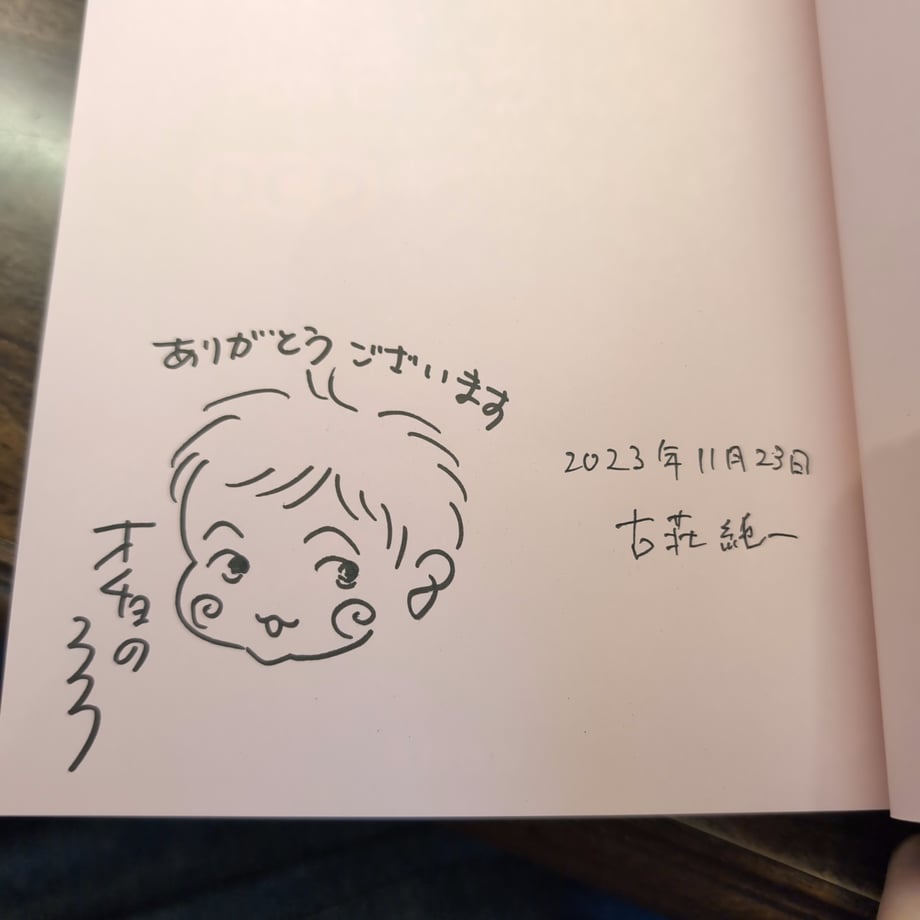 ありがとうございます
オチョの
うううう
2023年11月23日
古荘純一